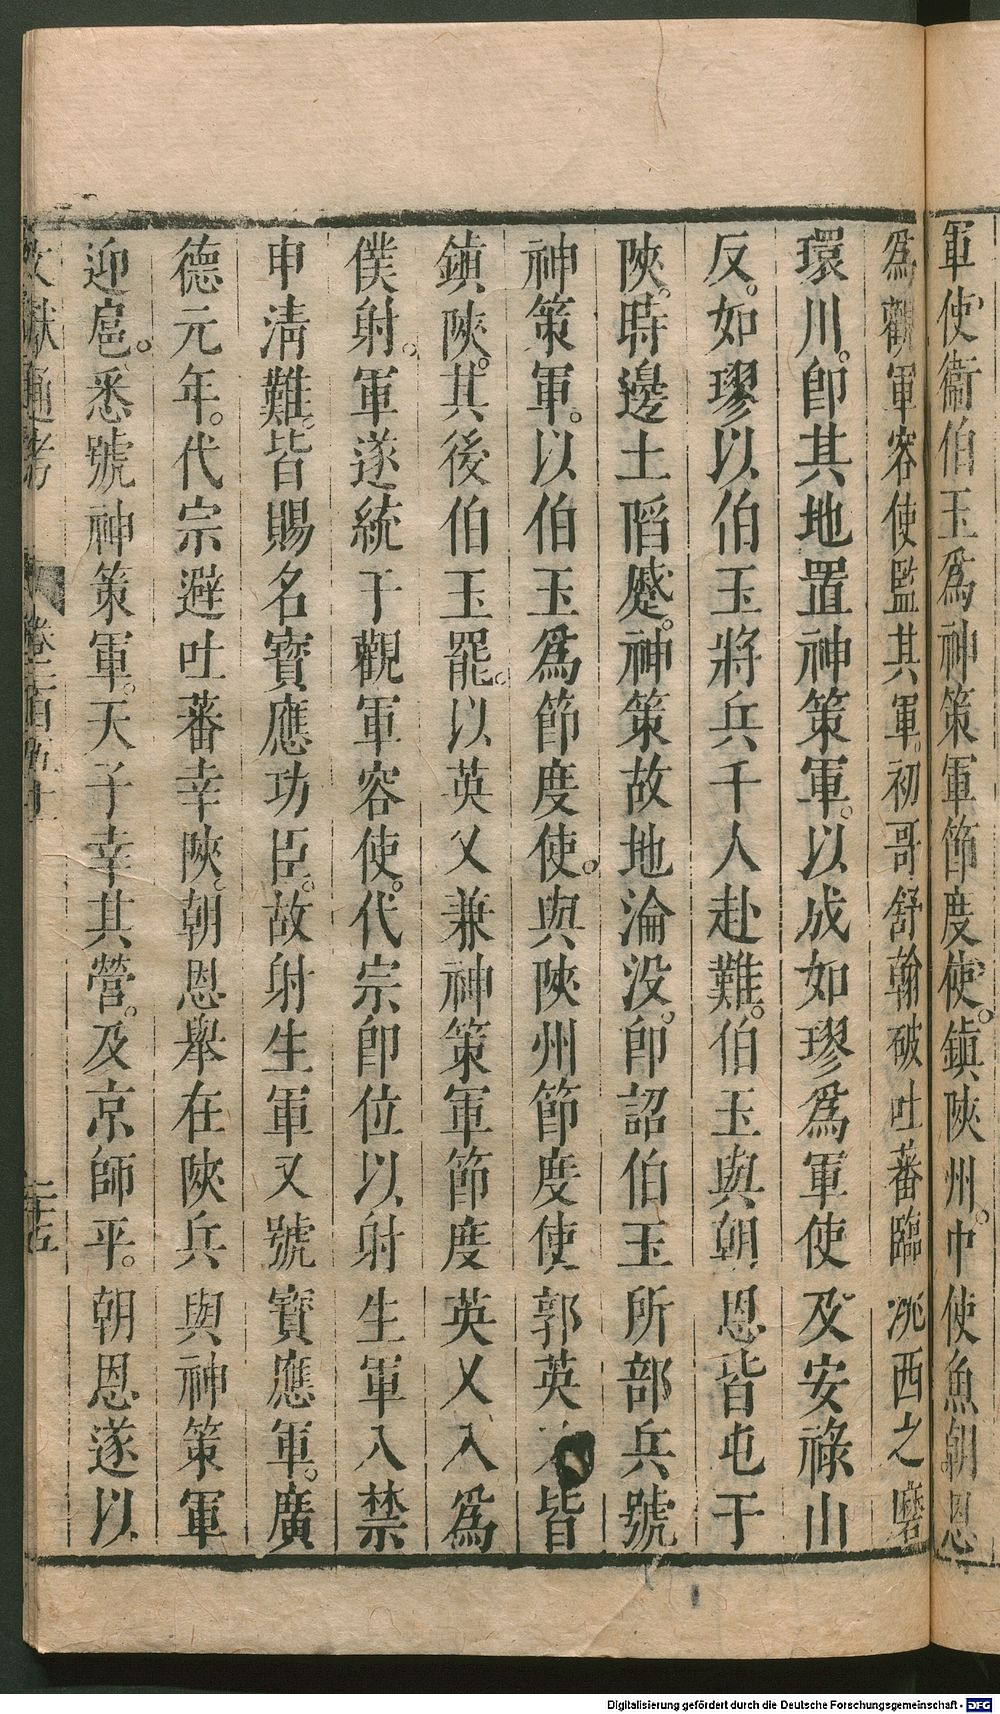 軍使衞伯玉爲神策軍節度使。鎮陝州。中使魚朝恩
爲觀軍容使監其軍。初哥舒翰破吐蕃臨洮西之磨
環川。卽其地置神策軍。以成如璆爲軍使及安祿山
反。如璆以伯玉將兵千人赴難。伯玉與朝恩皆屯于
陝。時邊土陷蹙。神策故地淪没。卽詔伯玉所部兵號
神策軍。以伯玉爲節度使。與陝州節度使郭英皆
鎮陝。其後伯玉罷。以英乂兼神策軍節度英乂入爲
僕射。軍遂統于觀軍容使。代宗卽位以射生軍入禁
中清難。皆賜名寳應功臣。故射生軍又號寳應軍。廣
德元年。代宗避吐蕃幸陝。朝恩舉在陝兵與神策軍
迎扈。悉號神策軍。天子幸其營。及京師平。朝恩遂以
文獻通考 卷一百五十一 二十五
Digitalisierung gefördert durch die Deutsche Forschungsgemeinschaft - DFG